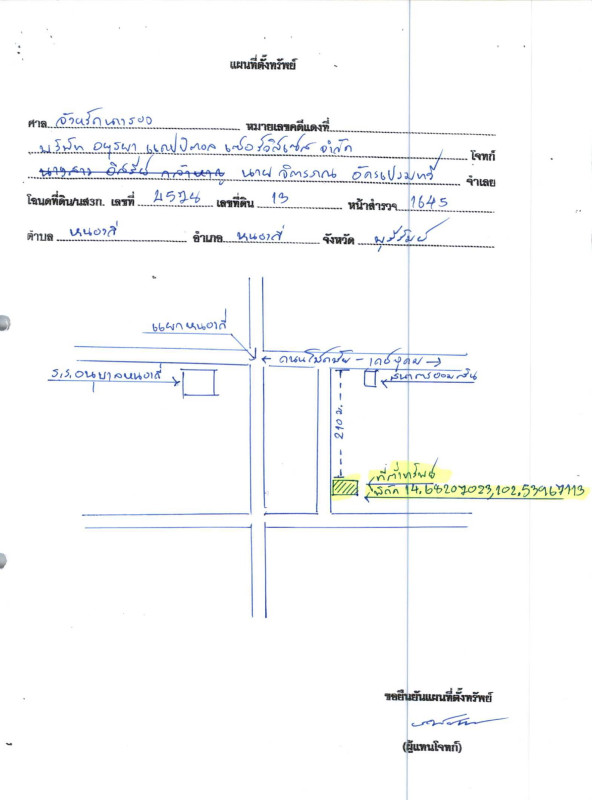 แผนที่ตั้งทรัพย์
ศาล จังหวัดนางรอง หมายเลขคดีแดงที่
บริษัท อยุธยา แคปปิตอล เซอร์วิสเซส จำกัด โจทก์
นางสาว นาย จำเลย
โฉนดที่ดิน/นส3ก. เลขที่ 4574 เลขที่ดิน 13 หน้าสำรวจ 1645
ตำบล หนองกี่ อำเภอ หนองกี่ จังหวัด บุรีรัมย์
แยกหนองกี่
ถนนโชคชัย - เดชอุดม
ร.ร.อนุบาลหนองกี่
ธนาคารออมสิน
210 ม.
ที่ตั้งทรัพย์
พิกัด 14.68207023,102.53967113
ขอยืนยันแผนที่ตั้งทรัพย์
(ผู้แทนโจทก์)